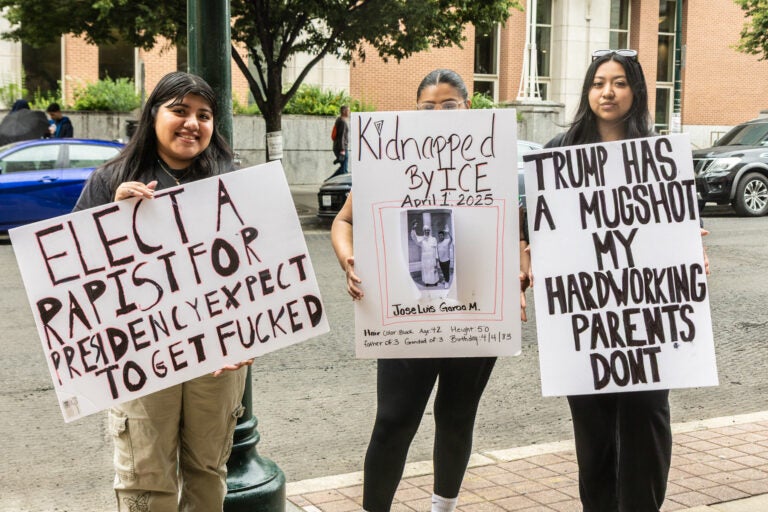 ELECT A
RAPIST FOR
PRESIDENCY EXPECT
TO GET FUCKED
Kidnapped
By ICE
April 1, 2025
Jose Luis Garcia M.
Hair Color: Black Age: 42 Height: 5'0
Father of: 3 Grandad of: 3 Birthday: 4/4/83
TRUMP HAS
A MUGSHOT
MY
HARDWORKING
PARENTS
DONT